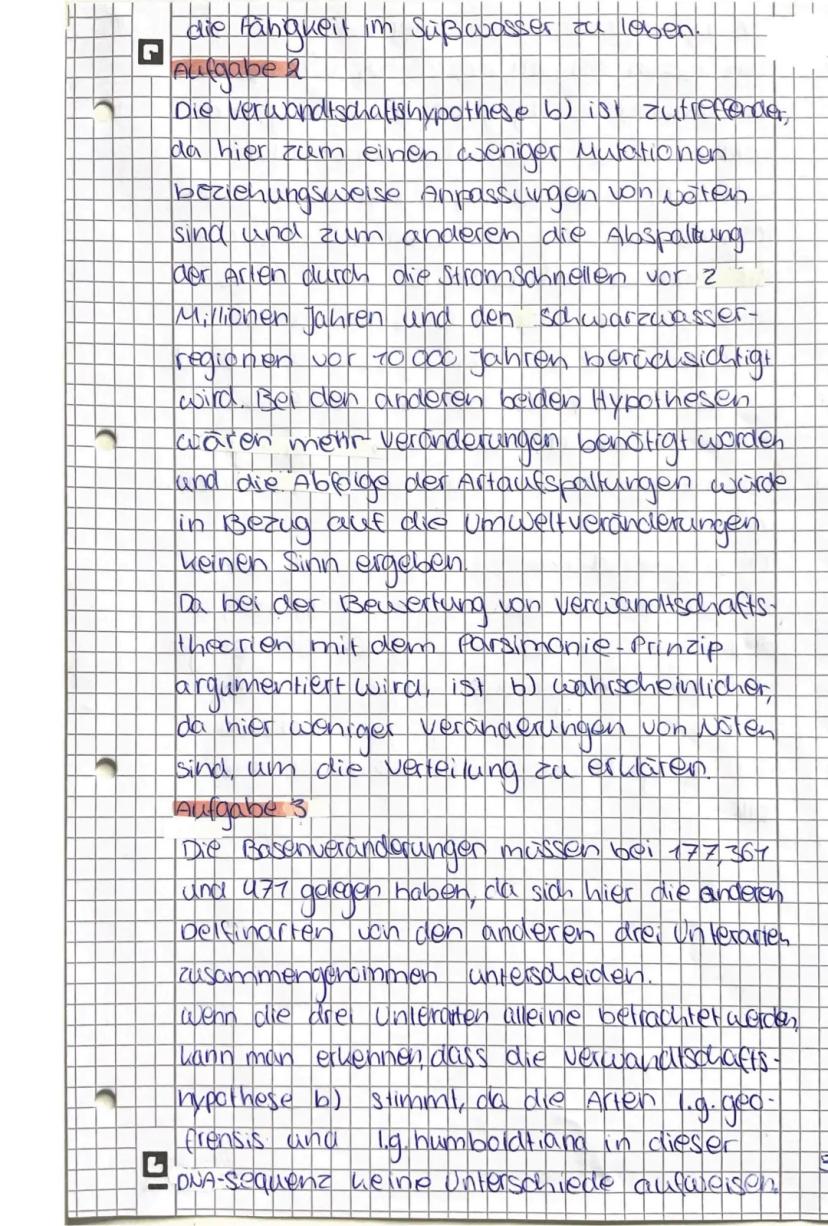 die Fähigkeit im Süßwasser zu leben.
Aufgabe 2
Die Verwandtschaftshypothese b) ist zutreffender,
da hier zum einen weniger Mutationen
beziehungsweise Anpassungen von Nöten
sind und zum anderen die Abspaltung
der Arten durch die Stromschnellen vor 2
Millionen Jahren und den Schwarzwasser-
regionen vor 10 000 Jahren berücksichtigt
wird. Bei den anderen beiden Hypothesen
wären mehr Veränderungen benötigt worden
und die Abfolge der Artaufspaltungen würde
in Bezug auf die Umweltveränderungen
keinen Sinn ergeben.
Da bei der Bewertung von Verwandtschafts-
theorien mit dem Parsimonie-Prinzip
argumentiert wird, ist b) wahrscheinlicher,
da hier weniger Veränderungen von Nöten
sind, um die Verteilung zu erklären.
Aufgabe 3
Die Basenveränderungen müssen bei 177, 361
und 471 gelegen haben, da sich hier die anderen
Delfinarten von den anderen drei Unterarten
zusammengenommen unterscheiden.
Wenn die drei Unterarten alleine betrachtet werden,
kann man erkennen, dass die Verwandtschafts-
hypothese b) stimmt, da die Arten I.g. geo-
frensis und I.g. humboldtiana in dieser
DNA-Sequenz keine Unterschiede aufweisen.